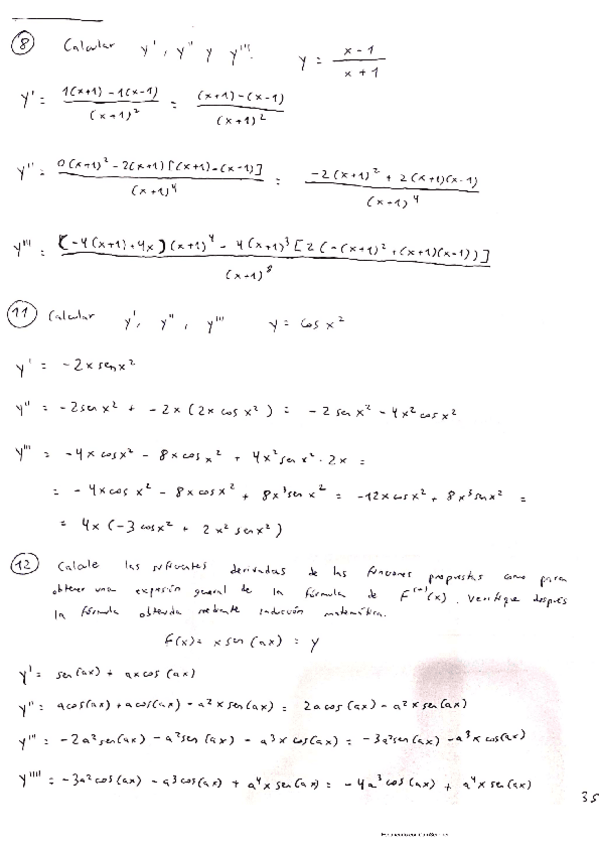 ⑧ Calcular y', y'' y y'''. y = (x-1)/(x+1)
y' = (1(x+1) - 1(x-1))/(x+1)² = ((x+1) - (x-1))/(x+1)²
y'' = (0(x+1)² - 2(x+1)[(x+1) - (x-1)])/(x+1)⁴ = (-2(x+1)² + 2(x+1)(x-1))/(x-1)⁴
y''' = ([-4(x+1) + 4x](x+1)⁴ - 4(x+1)³[2(-(x+1)² + (x+1)(x-1))])/(x-1)⁸
⑪ Calcular y', y'', y''' y = cos x²
y' = -2x sen x²
y'' = -2 sen x² + -2x (2x cos x²) = -2 sen x² - 4x² cos x²
y''' = -4x cos x² - 8x cos x² + 4x² sen x² · 2x =
= -4x cos x² - 8x cos x² + 8x³ sen x² = -12x cos x² + 8x³ sen x² =
= 4x (-3 cos x² + 2x² sen x²)
⑫ Calcule las suficientes derivadas de las funciones propuestas como para
obtener una expresión general de la fórmula de F⁽ⁿ⁾(x). Verifique después
la fórmula obtenida mediante inducción matemática.
F(x) = x sen (ax) = y
y' = sen (ax) + ax cos (ax)
y'' = a cos(ax) + a cos(ax) - a² x sen(ax) = 2a cos(ax) - a² x sen(ax)
y''' = -2a² sen(ax) - a² sen (ax) - a³ x cos(ax) = -3a² sen(ax) - a³ x cos(ax)
y'''' = -3a² cos(ax) - a³ cos(ax) + a⁴ x sen(ax) = -4a³ cos(ax) + a⁴ x sen (ax)
35